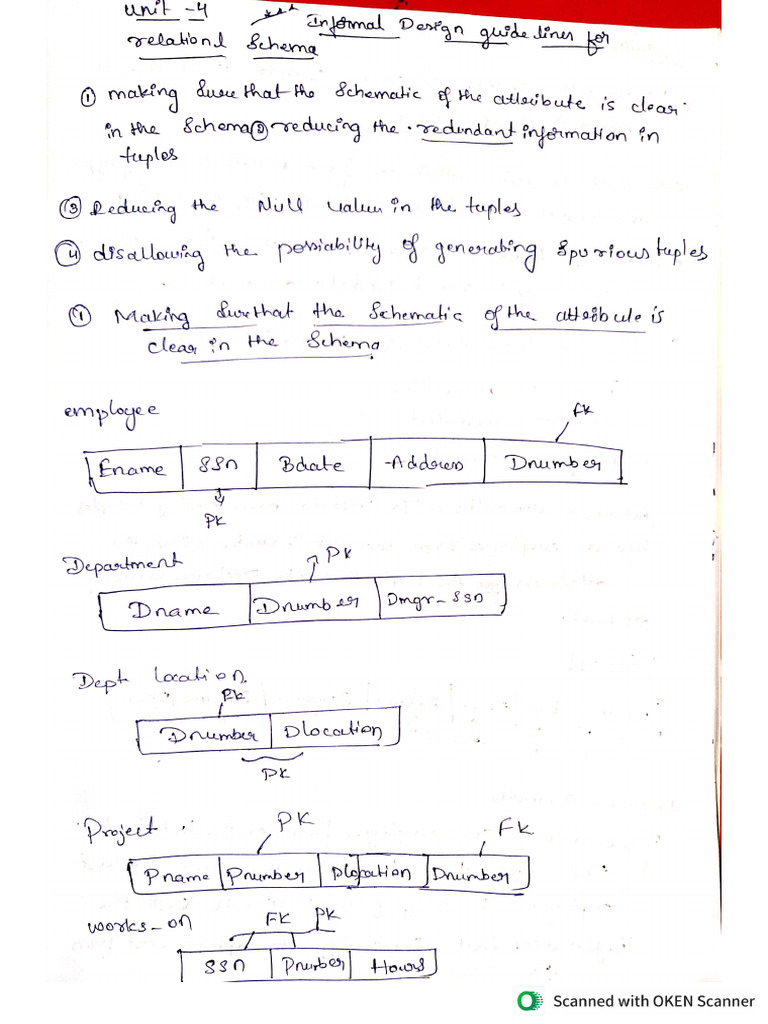 Unit - 4 *** Informal Design guidelines for
relationl Schema
① making Sure that the Schematic of the attribute is clear
in the Schema ② reducing the redundant information in
tuples
③ Reducing the Null value in the tuples
④ disallowing the possiability of generating Spurious tuples
① Making Sure that the Schematic of the attribute is
clear in the Schema
employee FK
Ename SSN Bdate Address Dnumber
PK
Department PK
Dname Dnumber Dmgr_SSN
Dept location
PK
Dnumber Dlocation
PK
Project PK FK
Pname Pnumber Plocation Dnumber
works_on FK PK
SSN Pnumber Hours
Scanned with OKEN Scanner